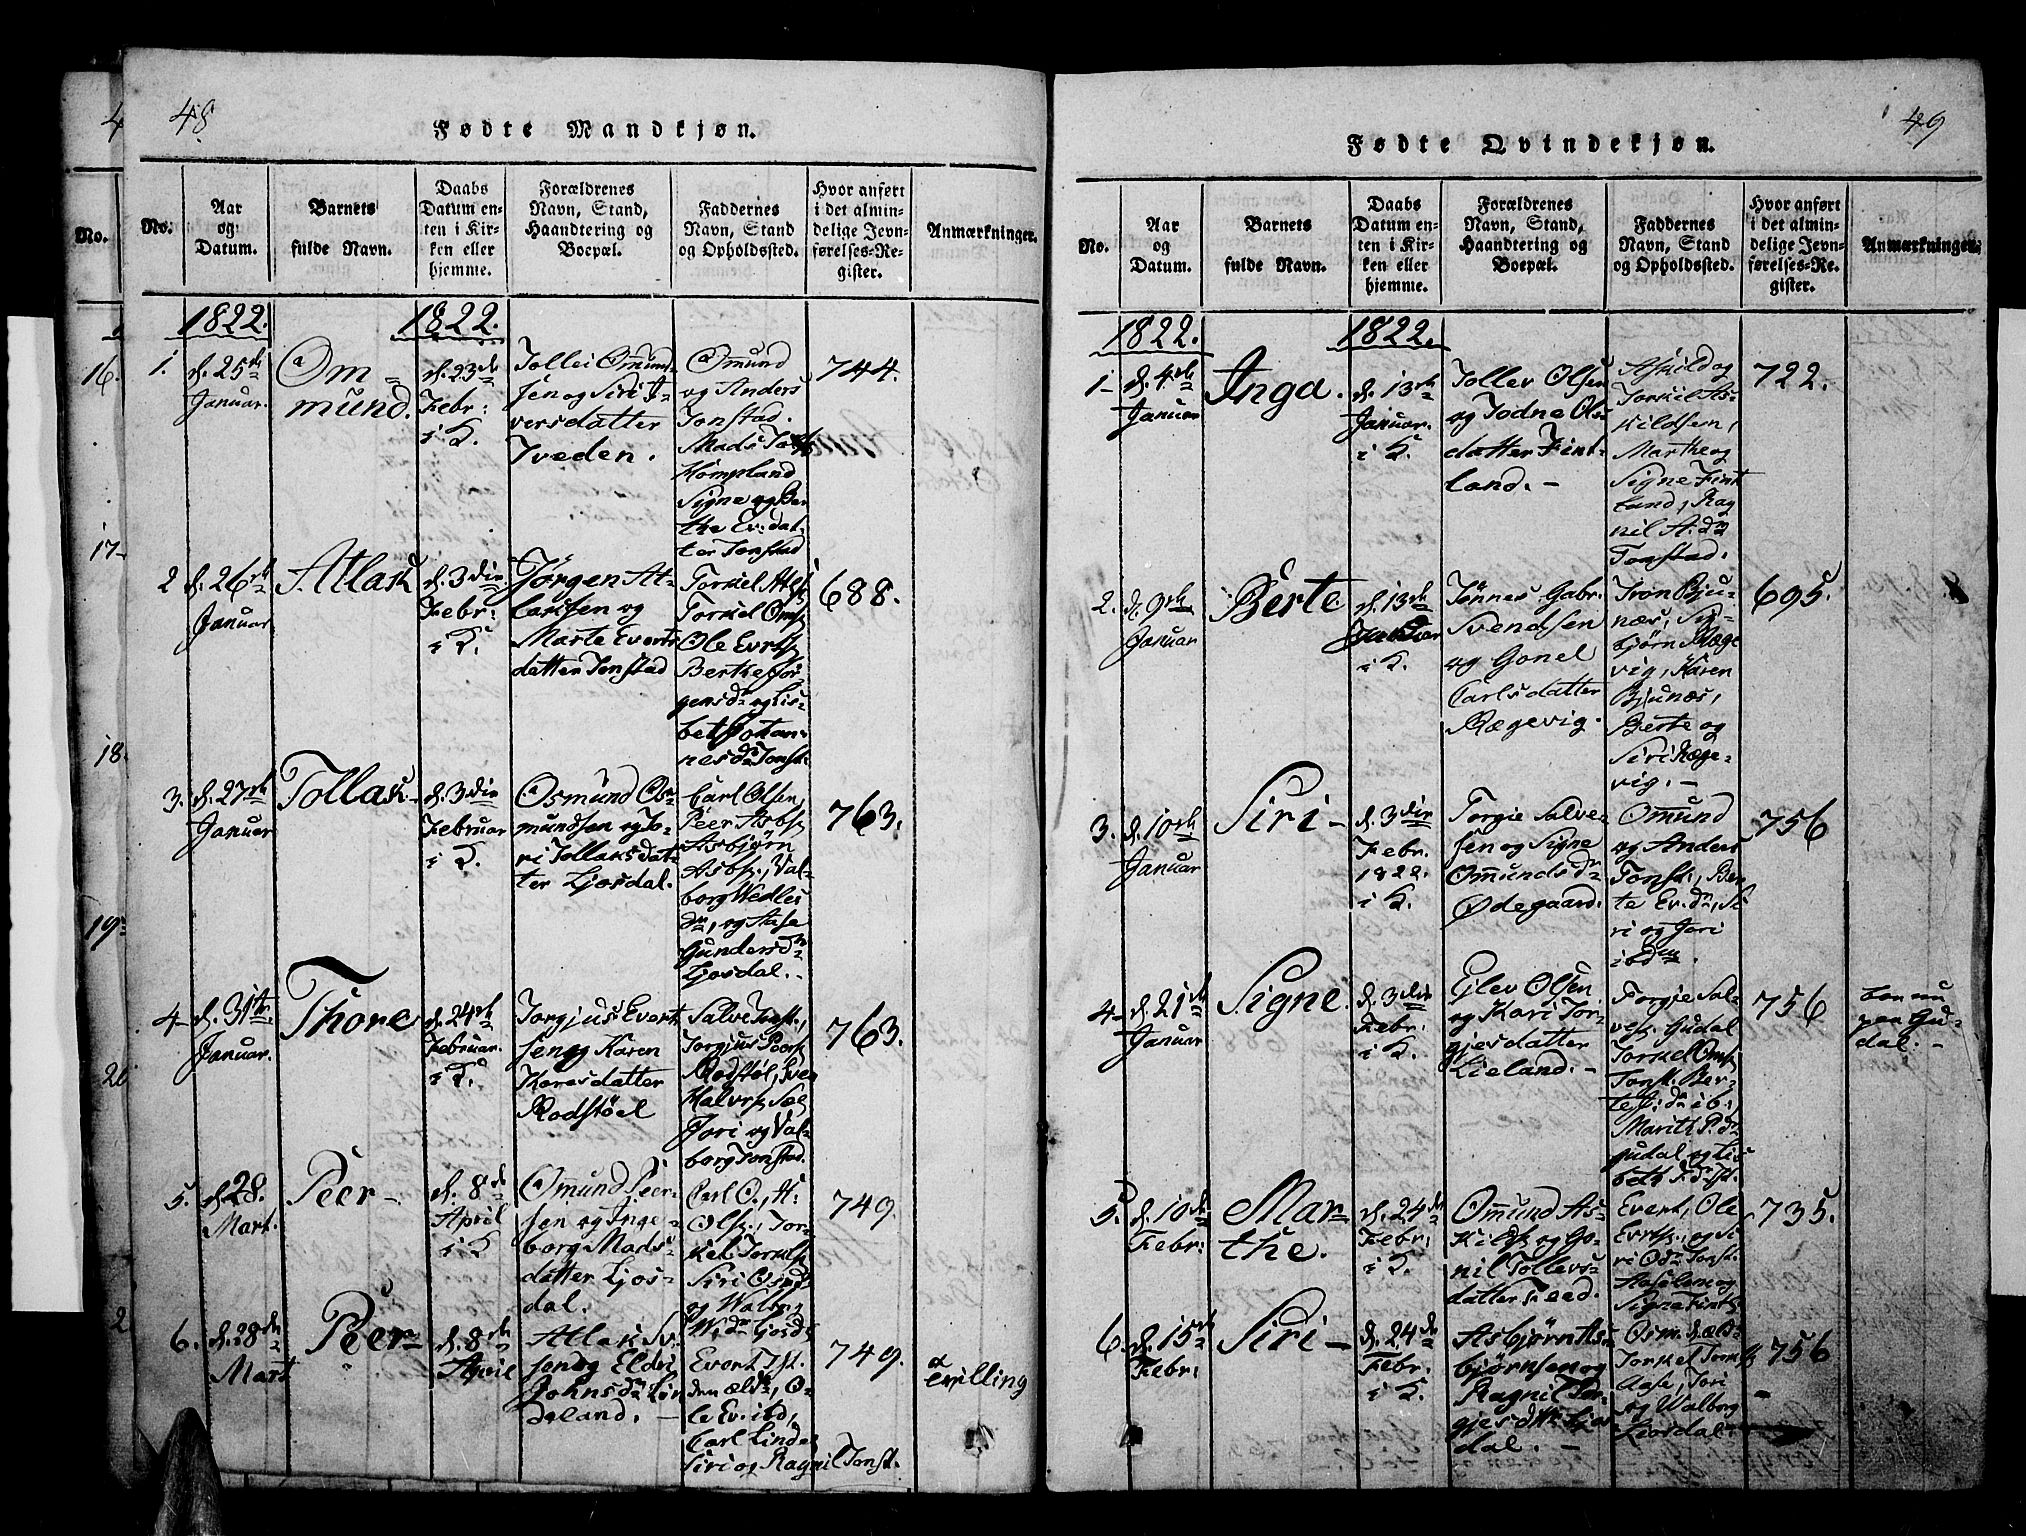 48
Fødte Mandkjøn.
No.
Aar
og
Datum.
Barnets
fulde Navn.
Daabs
Datum en-
ten i Kir-
ken eller
hjemme.
Forældrenes
Navn, Stand,
Haandtering og
Boepæl.
Faddernes
Navn, Stand
og Opholdssted.
Hvor anført
i det almin-
delige Jevn-
førelses-Re-
gister.
Anmærkninger.
1822.
1822.
1.
d. 25de
Januar.
Om=
mund.
d. 23de
Febr:
i K.
Tollei Omund-
sen og Siri I-
versdatter
Tveden.
Omund
og Anders
Tonstad.
Mads
Hompland
Signe og Ber
the Ev:dat-
ter Tonstad
744.
2
d. 26de
Januar
Atlak
d. 3die
Febr:
i K.
Jørgen At-
laksen og
Marte Everts
datter Tonstad
Torkel
Torkel Oms
Ole Evrts
Berthe Jør-
gensdr og Lis-
bet Johan-
nesdr Tonst:
688.
3.
d. 27de
Januar
Tollak-
d. 3die
Februar
i K.
Osmund Os-
mundsen og To-
ri Tollaksdat-
ter Ljosdal.
Carl Olsen,
Peer Asbs.
Asbjørn
Asbs., Val-
borg Wedles
dr, og Aase
Gundersdr
Ljosdal.-
763.
4-
d. 31te.
Januar.
Thore
d. 24de
Februar.
i K.
Torgjus Evert
sen og Karen
Koresdatter
Rodstøel
Salve Tonst.,
Torgjus Peers.
Rodstøl, Sven
Halvrs.
Tori og Val-
borg Tonstad.
763.
5.
d. 28.
Mart.
Peer-
d. 8de
April
i K
Omund Peer-
sen og Inge-
borg Mads-
datter Ljos-
dal.
Carl O., H:
Olsz., Tor-
kel Torkels
Siri
og Walbor
W:dr Ljosd:
749.
6.
d. 28de
Mart
Peer-
d. 8de
April
Atlak Sv
sen og Eldri
Johnsdr Lin
deland. -
Evert Tst.
den ældr, O-
le Ev. ibd,
Carl Linde
Siri og Ragnil Tonst.
749.
tvilling
49
Fødte Qvindekjøn.
No.
Aar
og
Datum.
Barnets
fulde Navn.
Daabs
Datum en-
ten i Kir-
ken eller
hjemme.
Forældrenes
Navn, Stand,
Haandtering og
Boepæl.
Faddernes
Navn, Stand
og Opholdssted.
Hvor anført
i det almin-
delige Jevn-
førelses-Re-
gister.
Anmærkninger.
1822.
1822.
1-
d. 4de
Januar
Inga.
d. 13de
Januar.
i K.
Tollev Olsen
og Jodne Ols-
datter Fint-
land.-
Askild og
Torkil As-
kildsen,
Marthe og
Signe Fint
land, Rag
nil A:dr
Tonstad.
722.
2.
d. 9de
Januar
Berte
d. 13de
Januar
i K.
Tønnes Gabr.
Svendsen
og Gonel
Carlsdatter
Rægevig.
Tron Bju-
næs, Sig-
bjørn Ræge
vig, Karen
Bjunæs,
Berte og
Siri Ræge-
vig.-
695.
3.
d. 10de
Januar
Siri-
d. 3die
Febr.
1822.
i K.
Torgie Salve-
sen og Signe
Omundsdr
Ødegaard.
Omund
og Anders
Tonst., Ber
te Ev.dr, Si
ri og Jori
ibdm.
756
4-
d. 21de
Januar
Signe.
d. 3die
Febr:
i K.
Ejlev Olsen
og Kari Tor-
gjesdatter
Lieland.-
Torgie Sal-
ves. Gudal
Torkel Oms.
Tonst. Ber-
te dr ib:
Marith P.dr
Gudal og Lis
beth T:dr Tst.
756
boe nu
paa Gu-
dal.-
5.
d. 10de
Febr:
Mar-
the.
d. 24de
Febr:
i K.
Omund As-
kilds. og Go-
nil Tollevs-
datter Feed.
Evert, Ole
Evrts., og Si
ri O:dr Tonst.
Aase og
Signe Fintl:
735.
6.
d. 15de
Febr:
Siri-
d. 24de
Febr.
i K.
Asbjørn As-
bjørnsen og
Ragnil Tor-
gjesdtr Ljos
dal.-
Osm. d. æld:
Torkel Tork
Aase, Tori
og Walborg
Liosdal.
756
No.
16.
17-
18.
19.
20